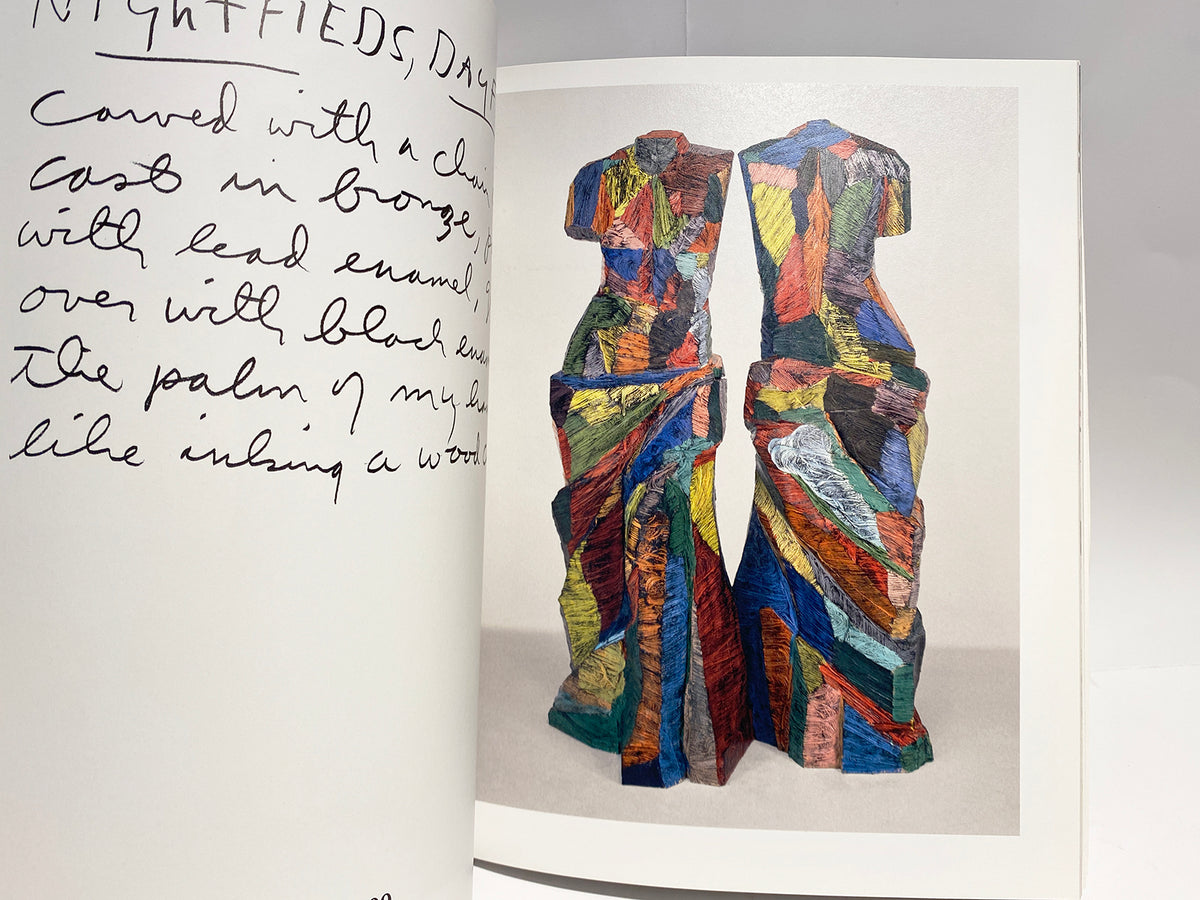 NightFIEDS, DAY
Carved with a chain
cast in bronze,
with lead enamel,
over with black
the palm of my
like inking a wood